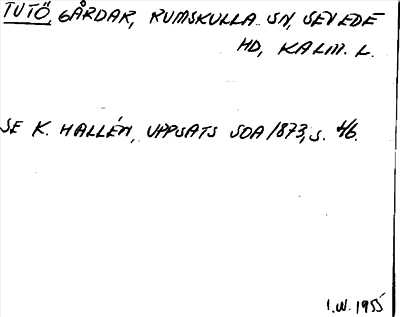 TUTÖ, GÅRDAR, RUMSKULLA SN, SEVEDE
HD, KALM. L.
SE K. HALLÉN, UPPSATS SOA 1873, S. 46.
I.W. 1955